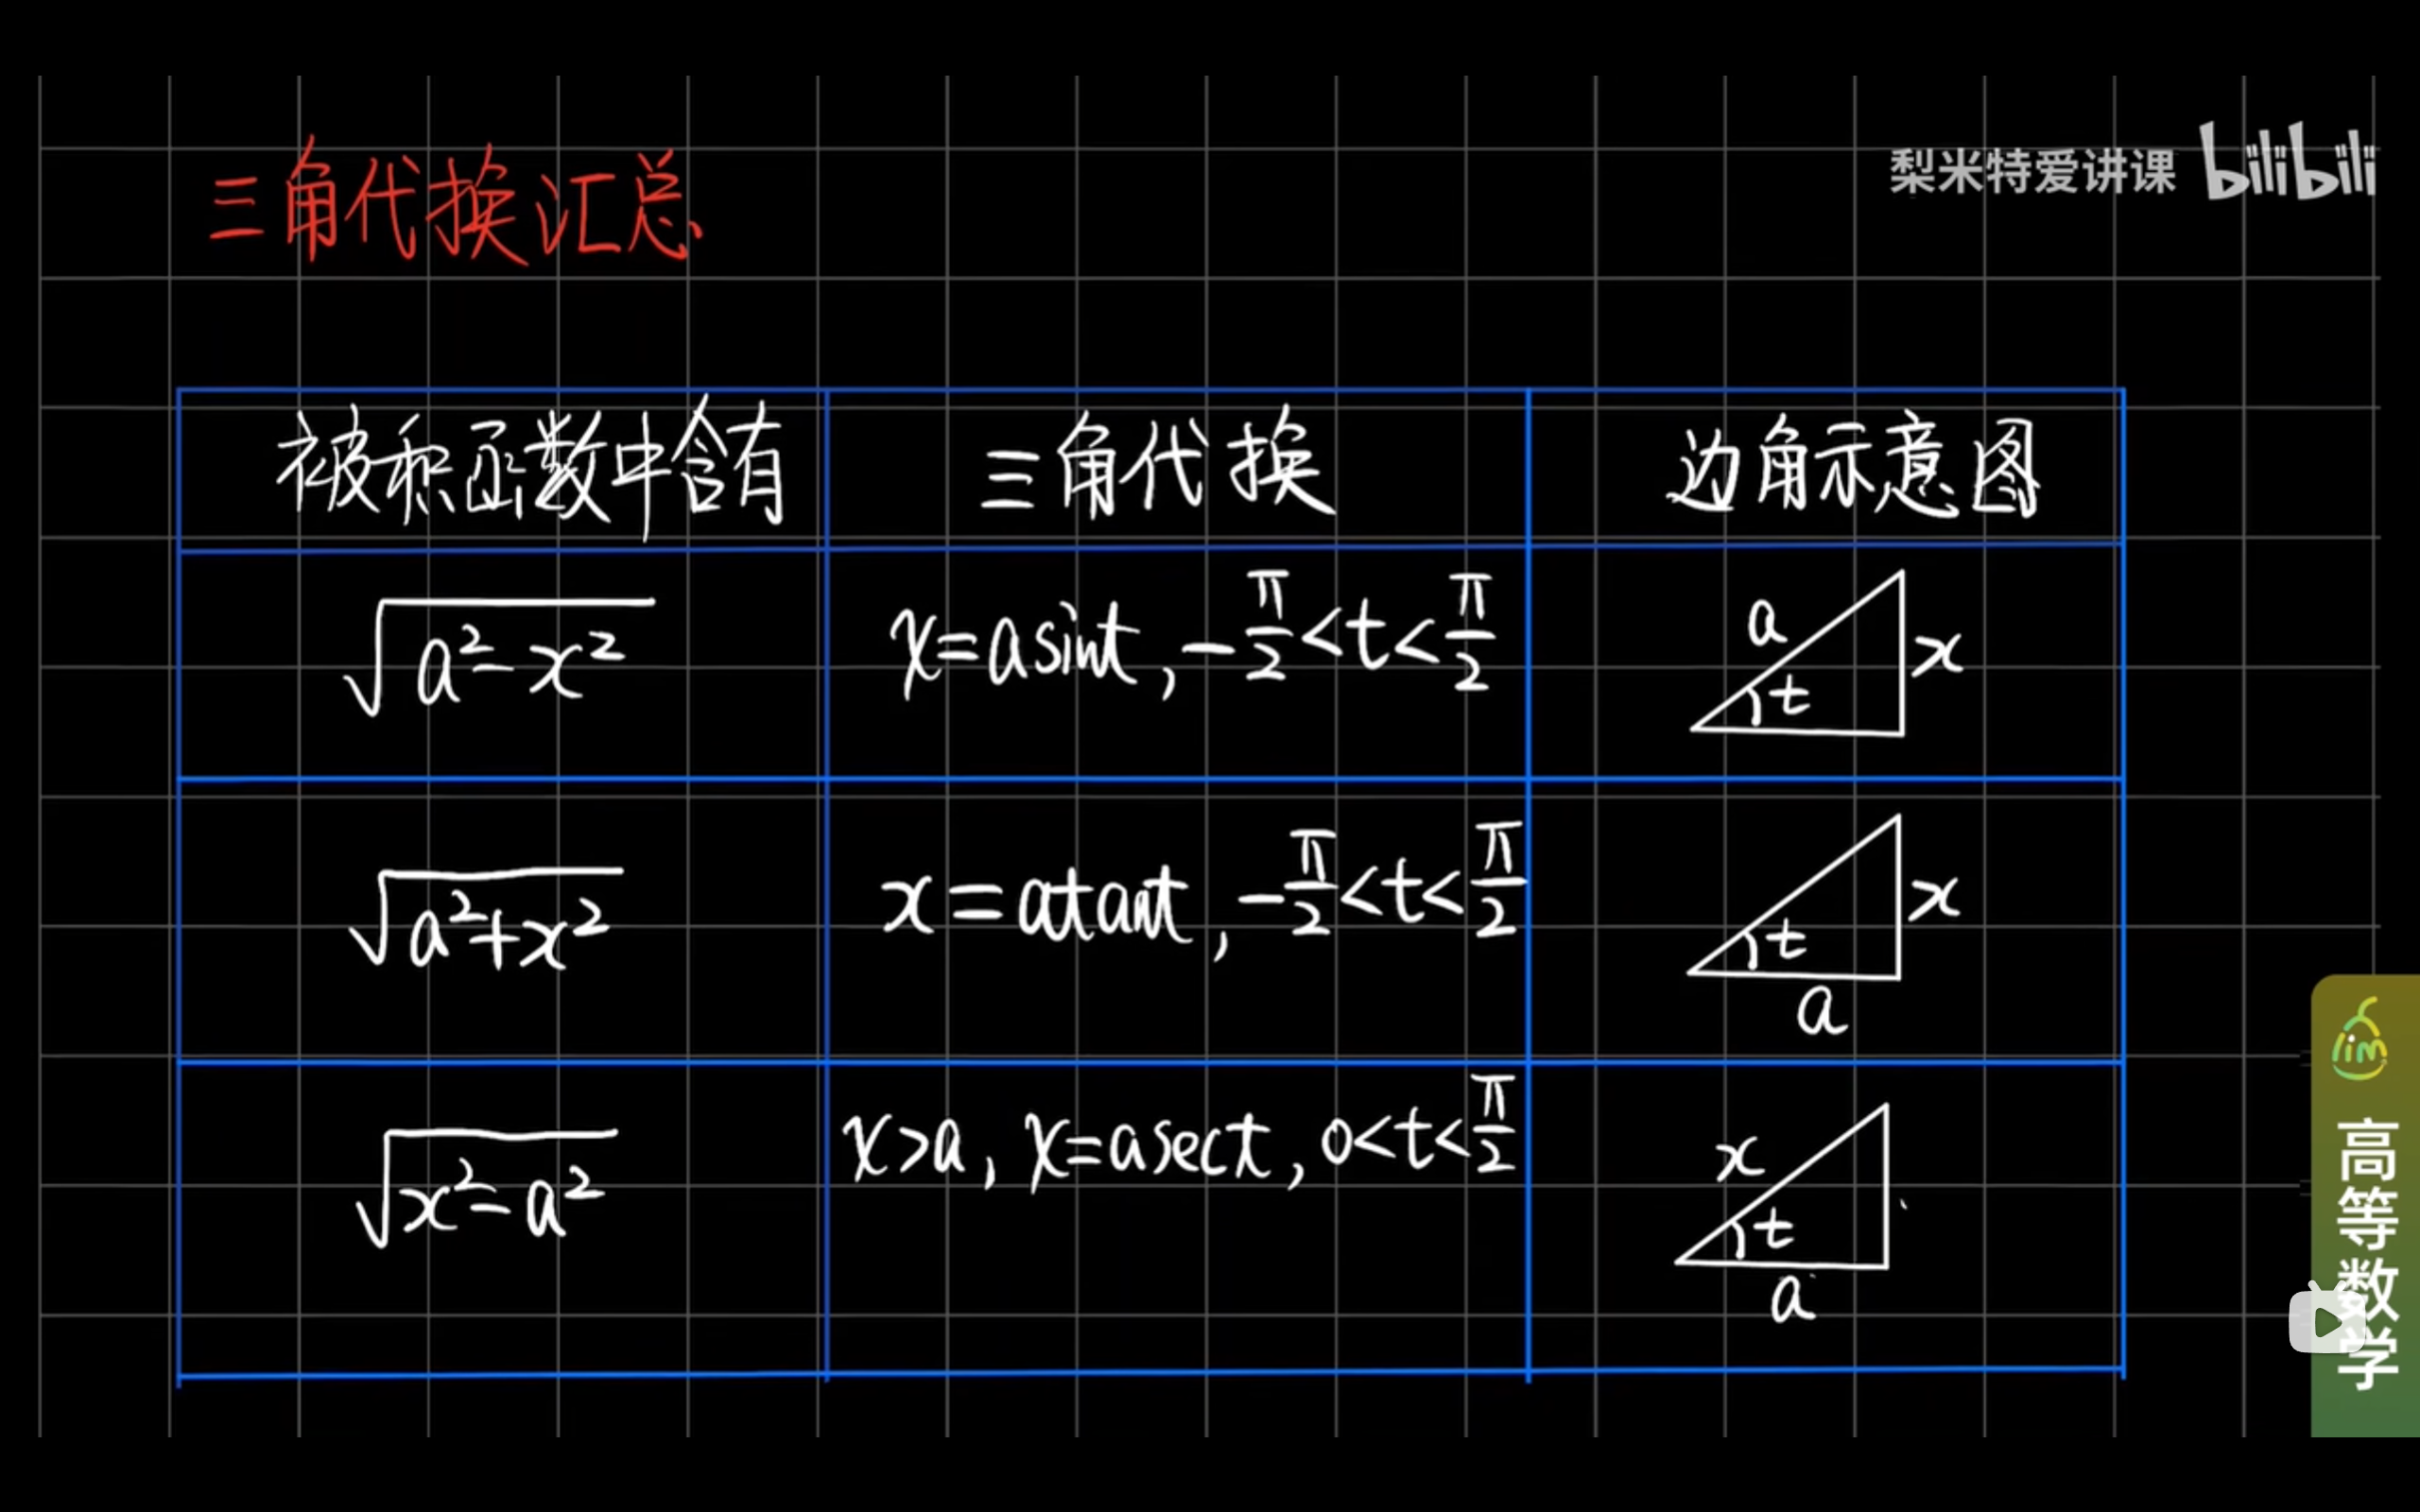 梨米特爱讲课 bilibili
三角代换汇总
被积函数中含有 三角代换 边角示意图
√(a²-x²) x=asint, -π/2<t<π/2 a t x
√(a²+x²) x=atant, -π/2<t<π/2 t x a
√(x²-a²) x>a, x=asect, 0<t<π/2 x t a
lim
高等数学